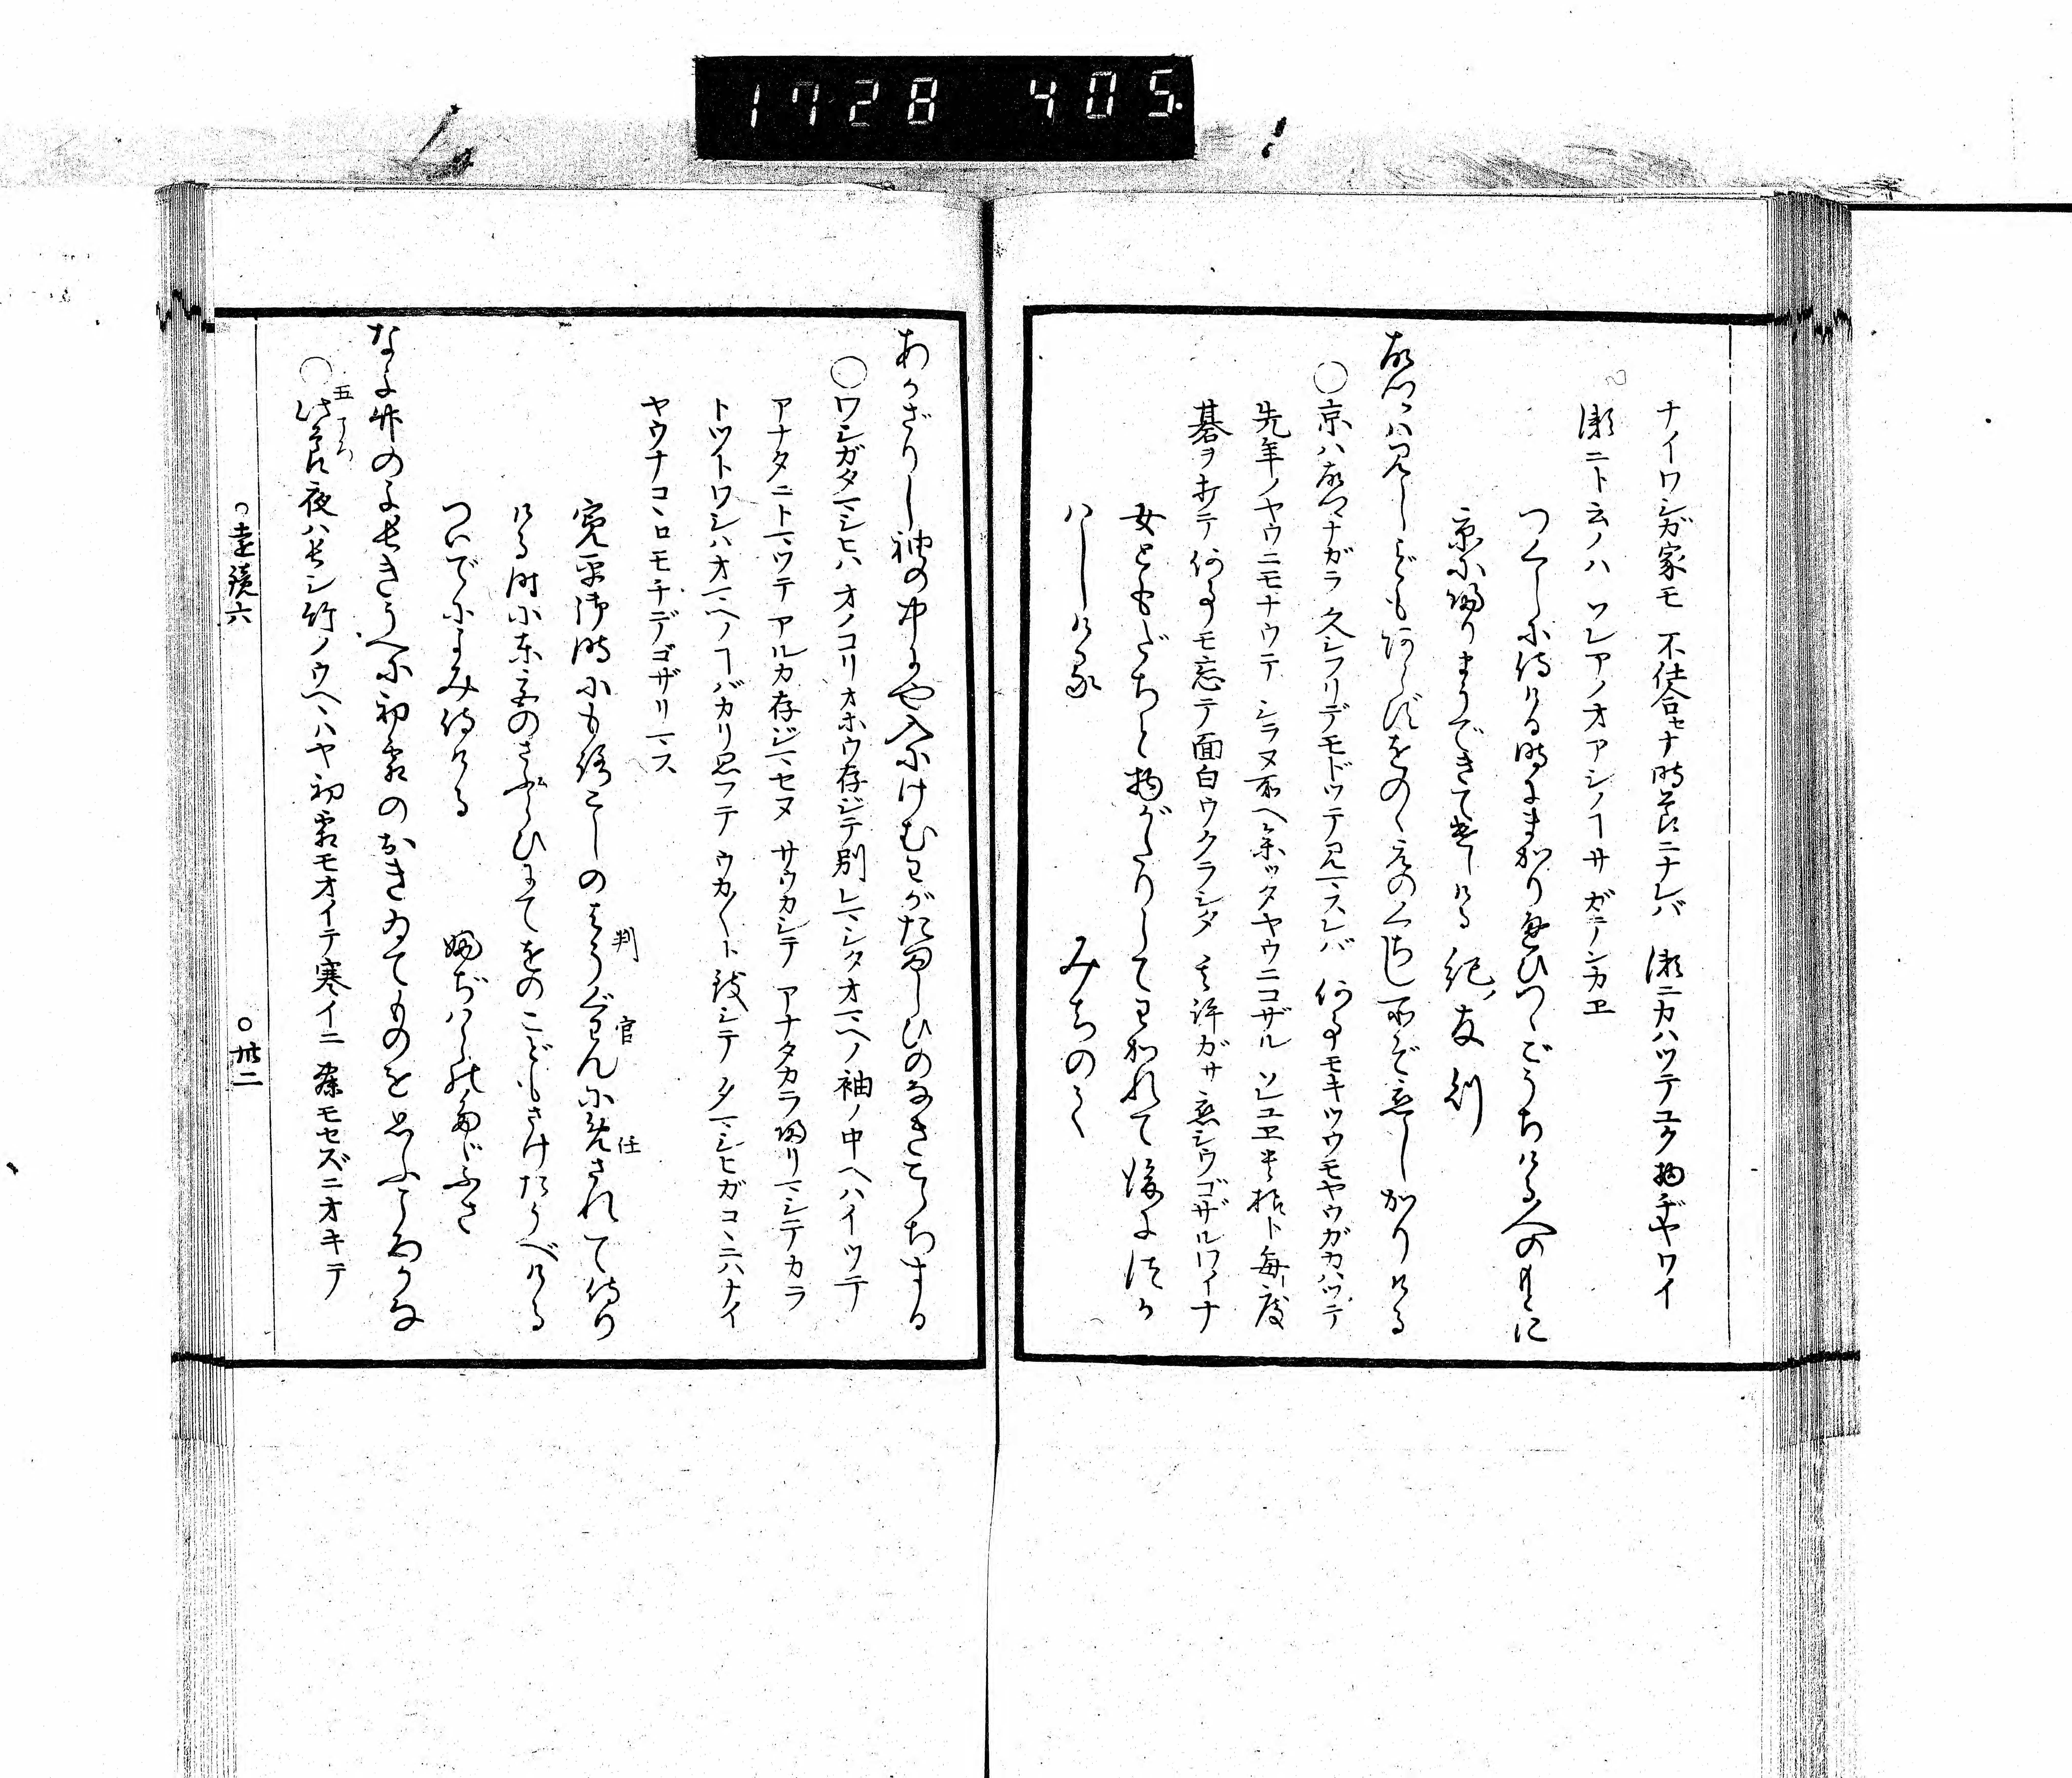 1728 405
ナイワシガ家モ 不仕合セナ時節ニナレバ 瀬ニカハッテユク物ヂヤワイ
瀬ニト云ノハ ソレアノオアシノヿサ ガテンカヱ
つくしに侍ける時にまかりかよひつゝごうちける人のもとに
京に帰りまうできてつかはしける 紀ノ友則
故郷ハ見しごともあらずをのゝえのくちし所ぞ恋しかりける
○京ハ故郷ナガラ久シフリデモドッテ見マスレバ 何事モキツウモヤウガカハッテ
先年ノヤウニモナウテ シラヌ所ヘ参ッタヤウニゴザル ソレユヱ貴様ト毎度
碁ヲ打テ何事モ忘テ面白ウクラシタ 其許ガサ恋シウゴザルワイナ
女ともだちと物がたりしてわかれて後につか
はしける みちのく
あかざりし袖の中にや入にけむわがたましひのなきこゝちする
○ワシガタマシヒハ オノコリオホウ存ジテ別レマシタオマヘノ袖ノ中ヘハイッテ
アナタニトマッテアルカ存ジマセヌ サウカシテ アナタカラ帰リマシテカラ
トットワシハオマヘノヿバカリ思フテ ウカ〳〵ト致シテ タマシヒガコヽニハナイ
ヤウナコヽロモチデゴザリマス
寛平御時にもろこしのはうぐわんにめされて侍り
判官 任
ける時に東宮のさぶらひにてをのこどもさけたうべける
ついでによみ侍ける 藤ぢはらのたゞふさ
なよ竹のよ長きうへに初霜のおきゐてものを思ふころかな
○此節夜ハ長シ竹ノウヘヽハヤ初霜モオイテ寒イニ 寐モセズニオキテ
五 ころ
○遠鏡六 ○卅二